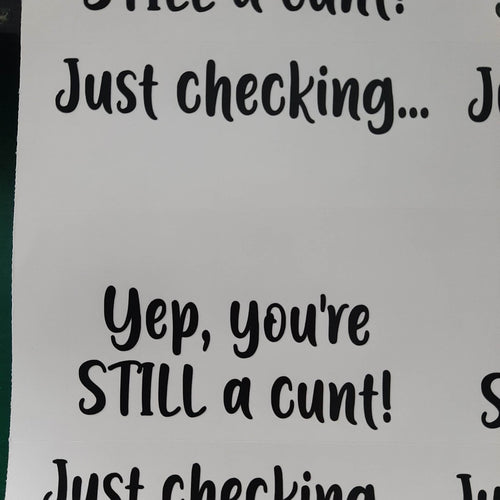 STILL a cunt!
Just checking...
Yep, you're
STILL a cunt!
Just checking